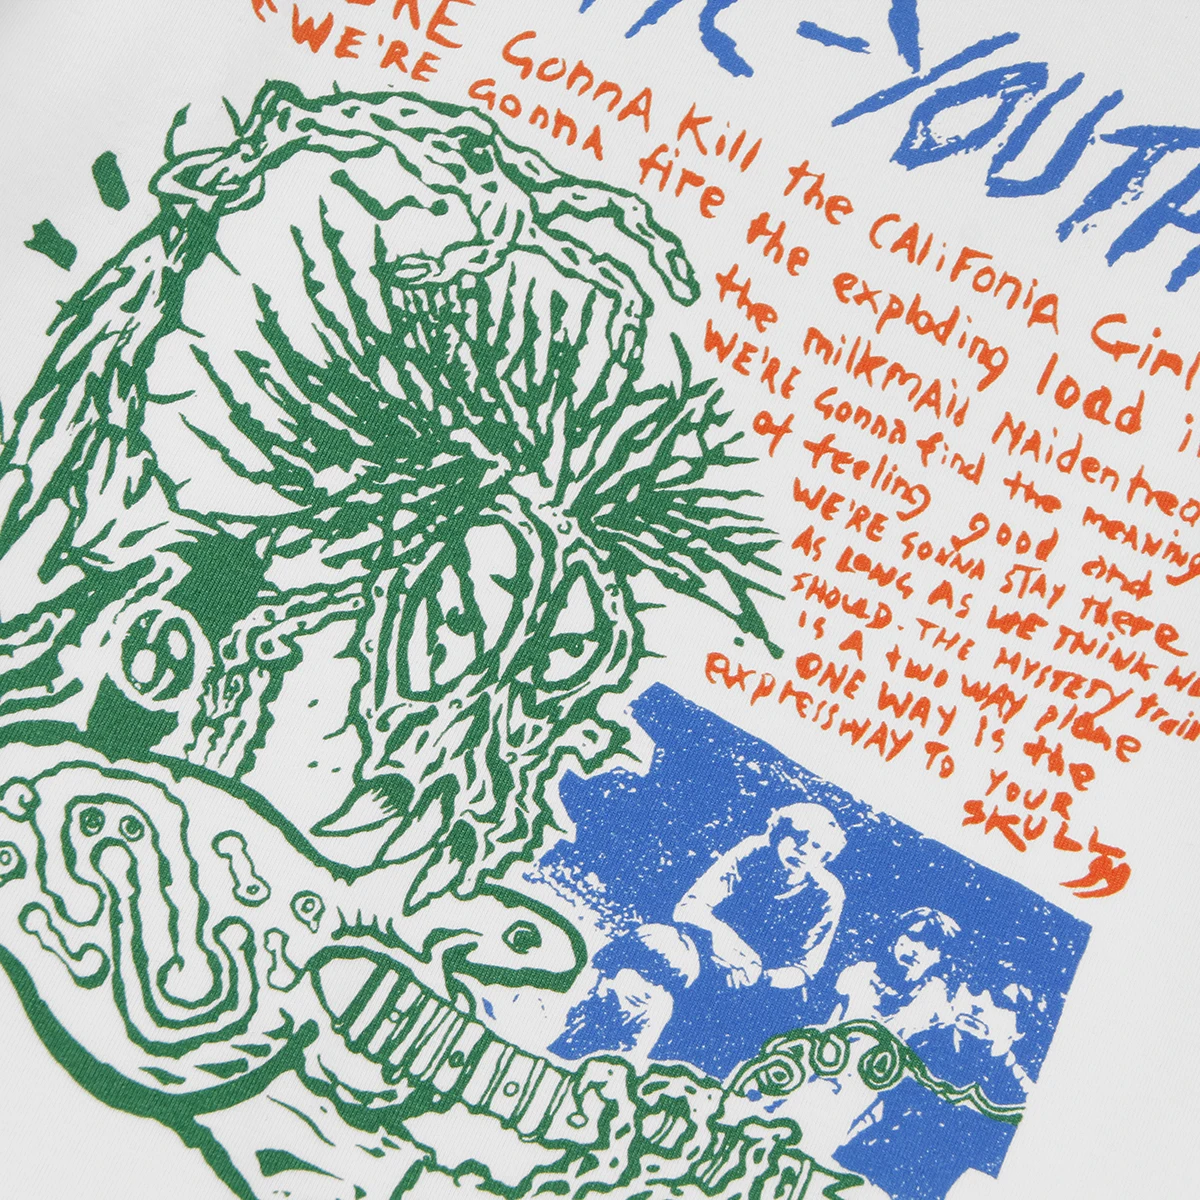 -YOUTH
WE'RE GONNA Kill the CALiFONiA Girl
WE'RE GONNA fire the exploding load i
the milkmAid MAidenhea
WE'RE GONNA find the meaning
of feeling good and
WE'RE GONNA STAY there
AS LONG AS WE THINK WE
SHOULD. THE MYSTERY train
is A two WAY plane
ONE WAY is the
expressWAY TO YOUR
SKULL"